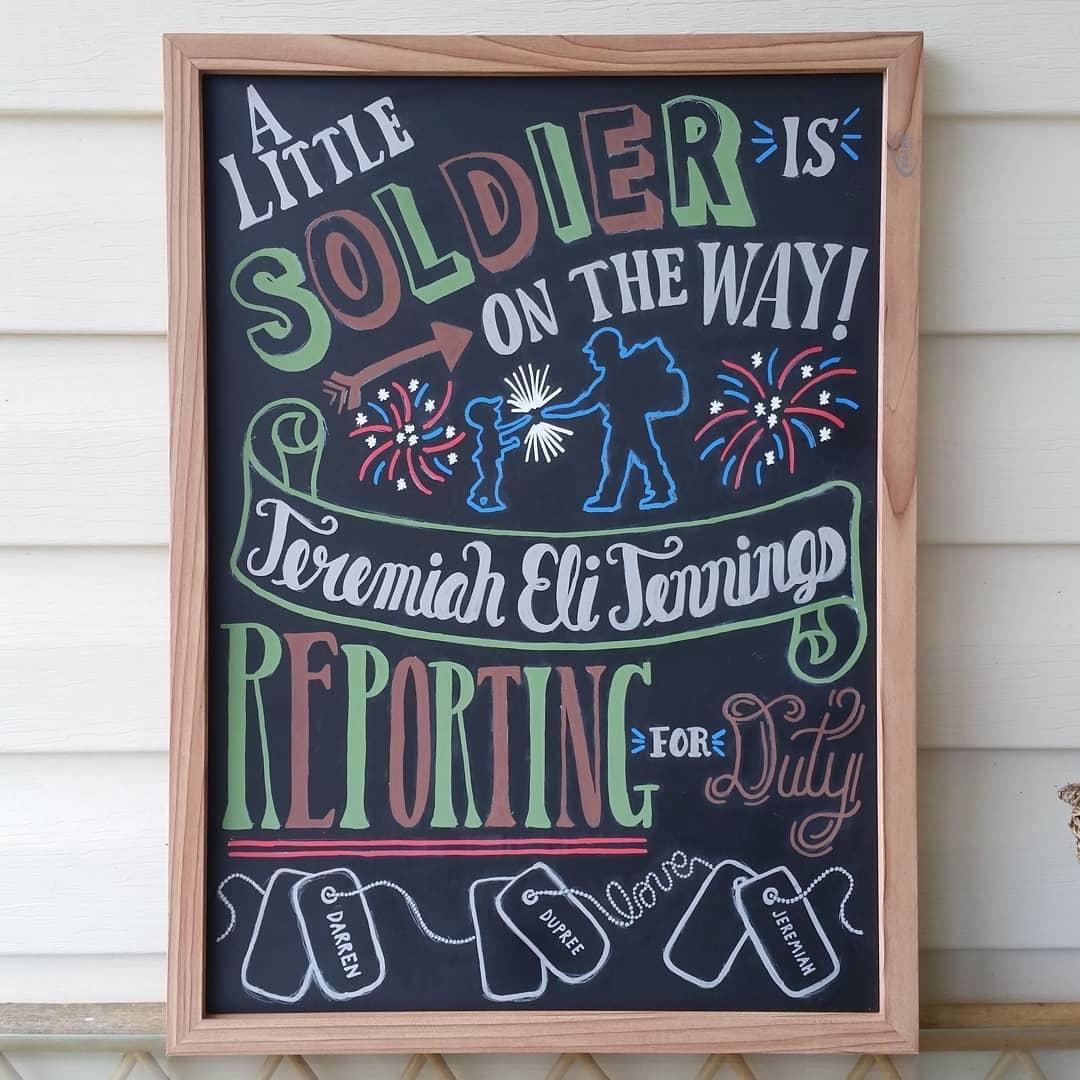 A
LITTLE
SOLDIER IS
ON THE WAY!
Jeremiah Eli Jennings
REPORTING FOR Duty
love
DARREN
DUPREE
JEREMIAH